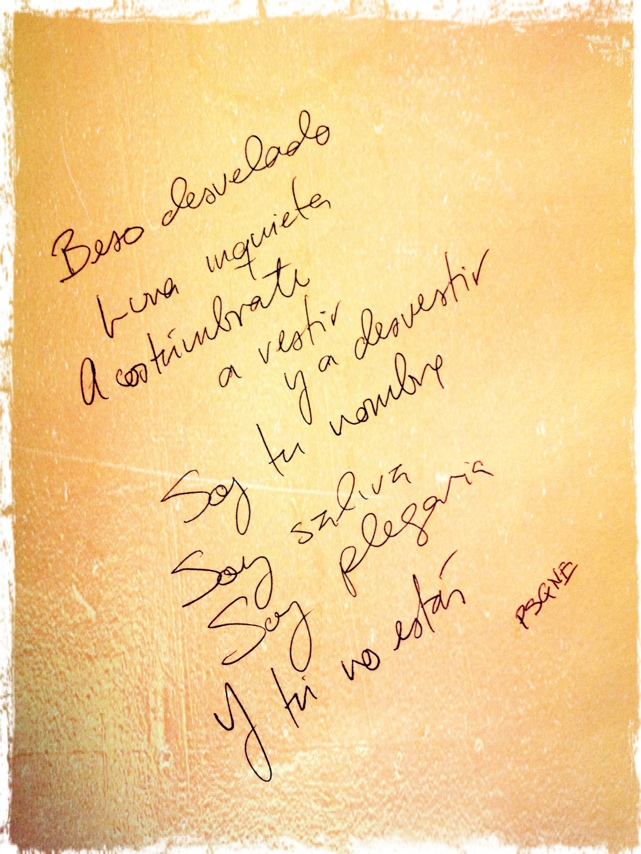 Beso desvelado
Luna inquieta
Acostúmbrate
a vestir
y a desvestir
Soy tu nombre
Soy saliva
Soy plegaria
Y tú no estás
PSQNE